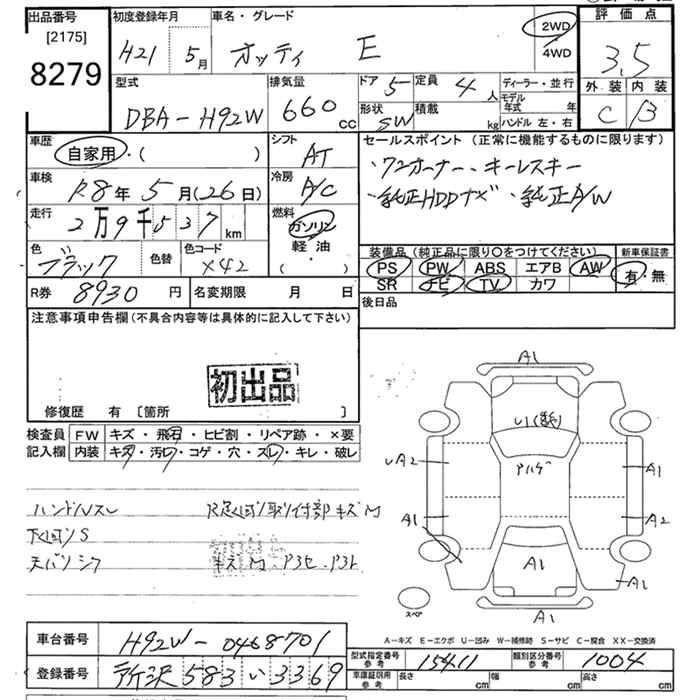 出品番号 初度登録年月 車名・グレード 評価点
[2175]
8279
H21 5月 オッティ E 2WD 4WD 3.5
外装 内装
C B
型式 DBA-H92W 排気量 660 cc ドア 5 定員 4人 ディーラー・並行
形状 SW 積載 kg モデル年式 年
ハンドル 左・右
車歴 自家用・( ) シフト AT
セールスポイント (正常に機能するものに限ります)
・ワンオーナー・キーレスキー
・純正HDDナビ・純正A/W
車検 R8年5月(26日) 冷房 A/C
走行 2万9千537km 燃料 ガソリン 軽油 ( ・ )
色 ブラック 色替 色コード X42
装備品 (純正品に限り〇をつけてください) 新車保証書
PS PW ABS エアB AW 有・無
SR ナビ TV カワ
R券 8930円 名変期限 月 日
後日品
注意事項申告欄 (不具合内容等は具体的に記入して下さい)
初出品
修復歴 有 [箇所 ]
検査員 FW キズ・飛石・ヒビ割・リペア跡・×要
記入欄 内装 キズ・汚れ・コゲ・穴・スレ・キレ・破レ
ハンドルスレ
天バリシワ
A1
A2
A1
A1
A2
A1
A1
A1
スペア
A-キズ E-エクボ U-凹み W-補修跡 S-サビ C-腐食 XX-交換済
車台番号 H92W-0468701
登録番号 所沢 583 い 3369
型式指定番号 参考 15411 類別区分番号 参考 1004
車庫証明用 参考 長さ cm 幅 cm 高さ cm